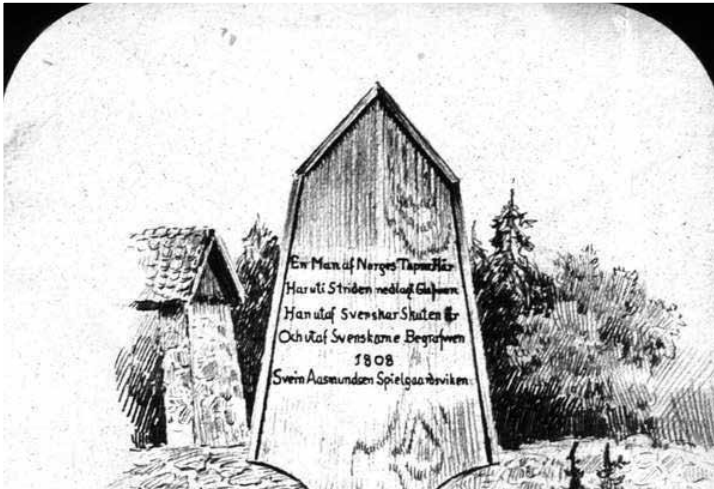 En Man af Norges Tapra Här
Har uti Striden nedlagt
Han utaf Svenskar Skuten Är
Och utaf Svenskarne Begrafwen
1808
Svein Aasmundsen Spielgaardsviken.